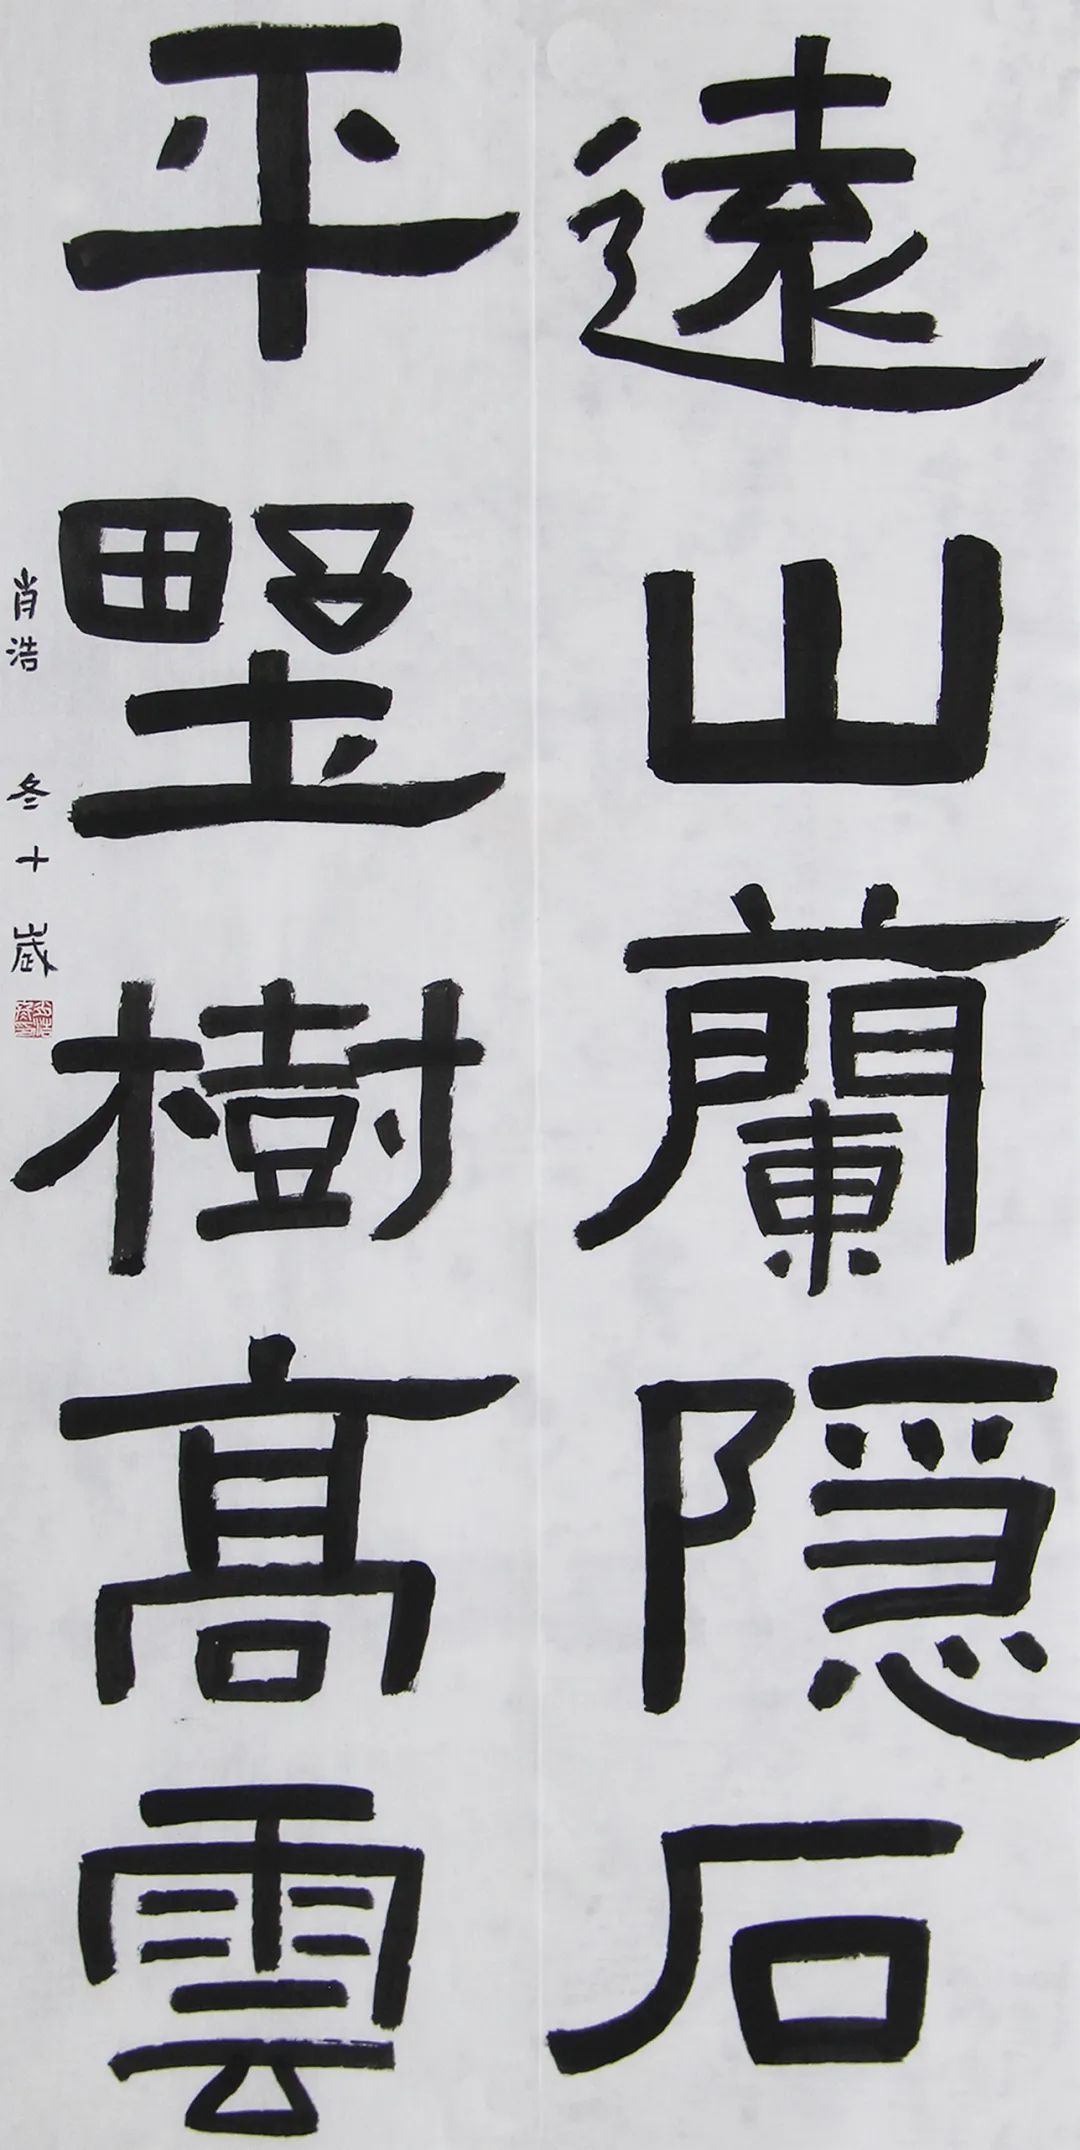 遠山蘭隱石
平野樹高雲
肖浩 冬 十歲